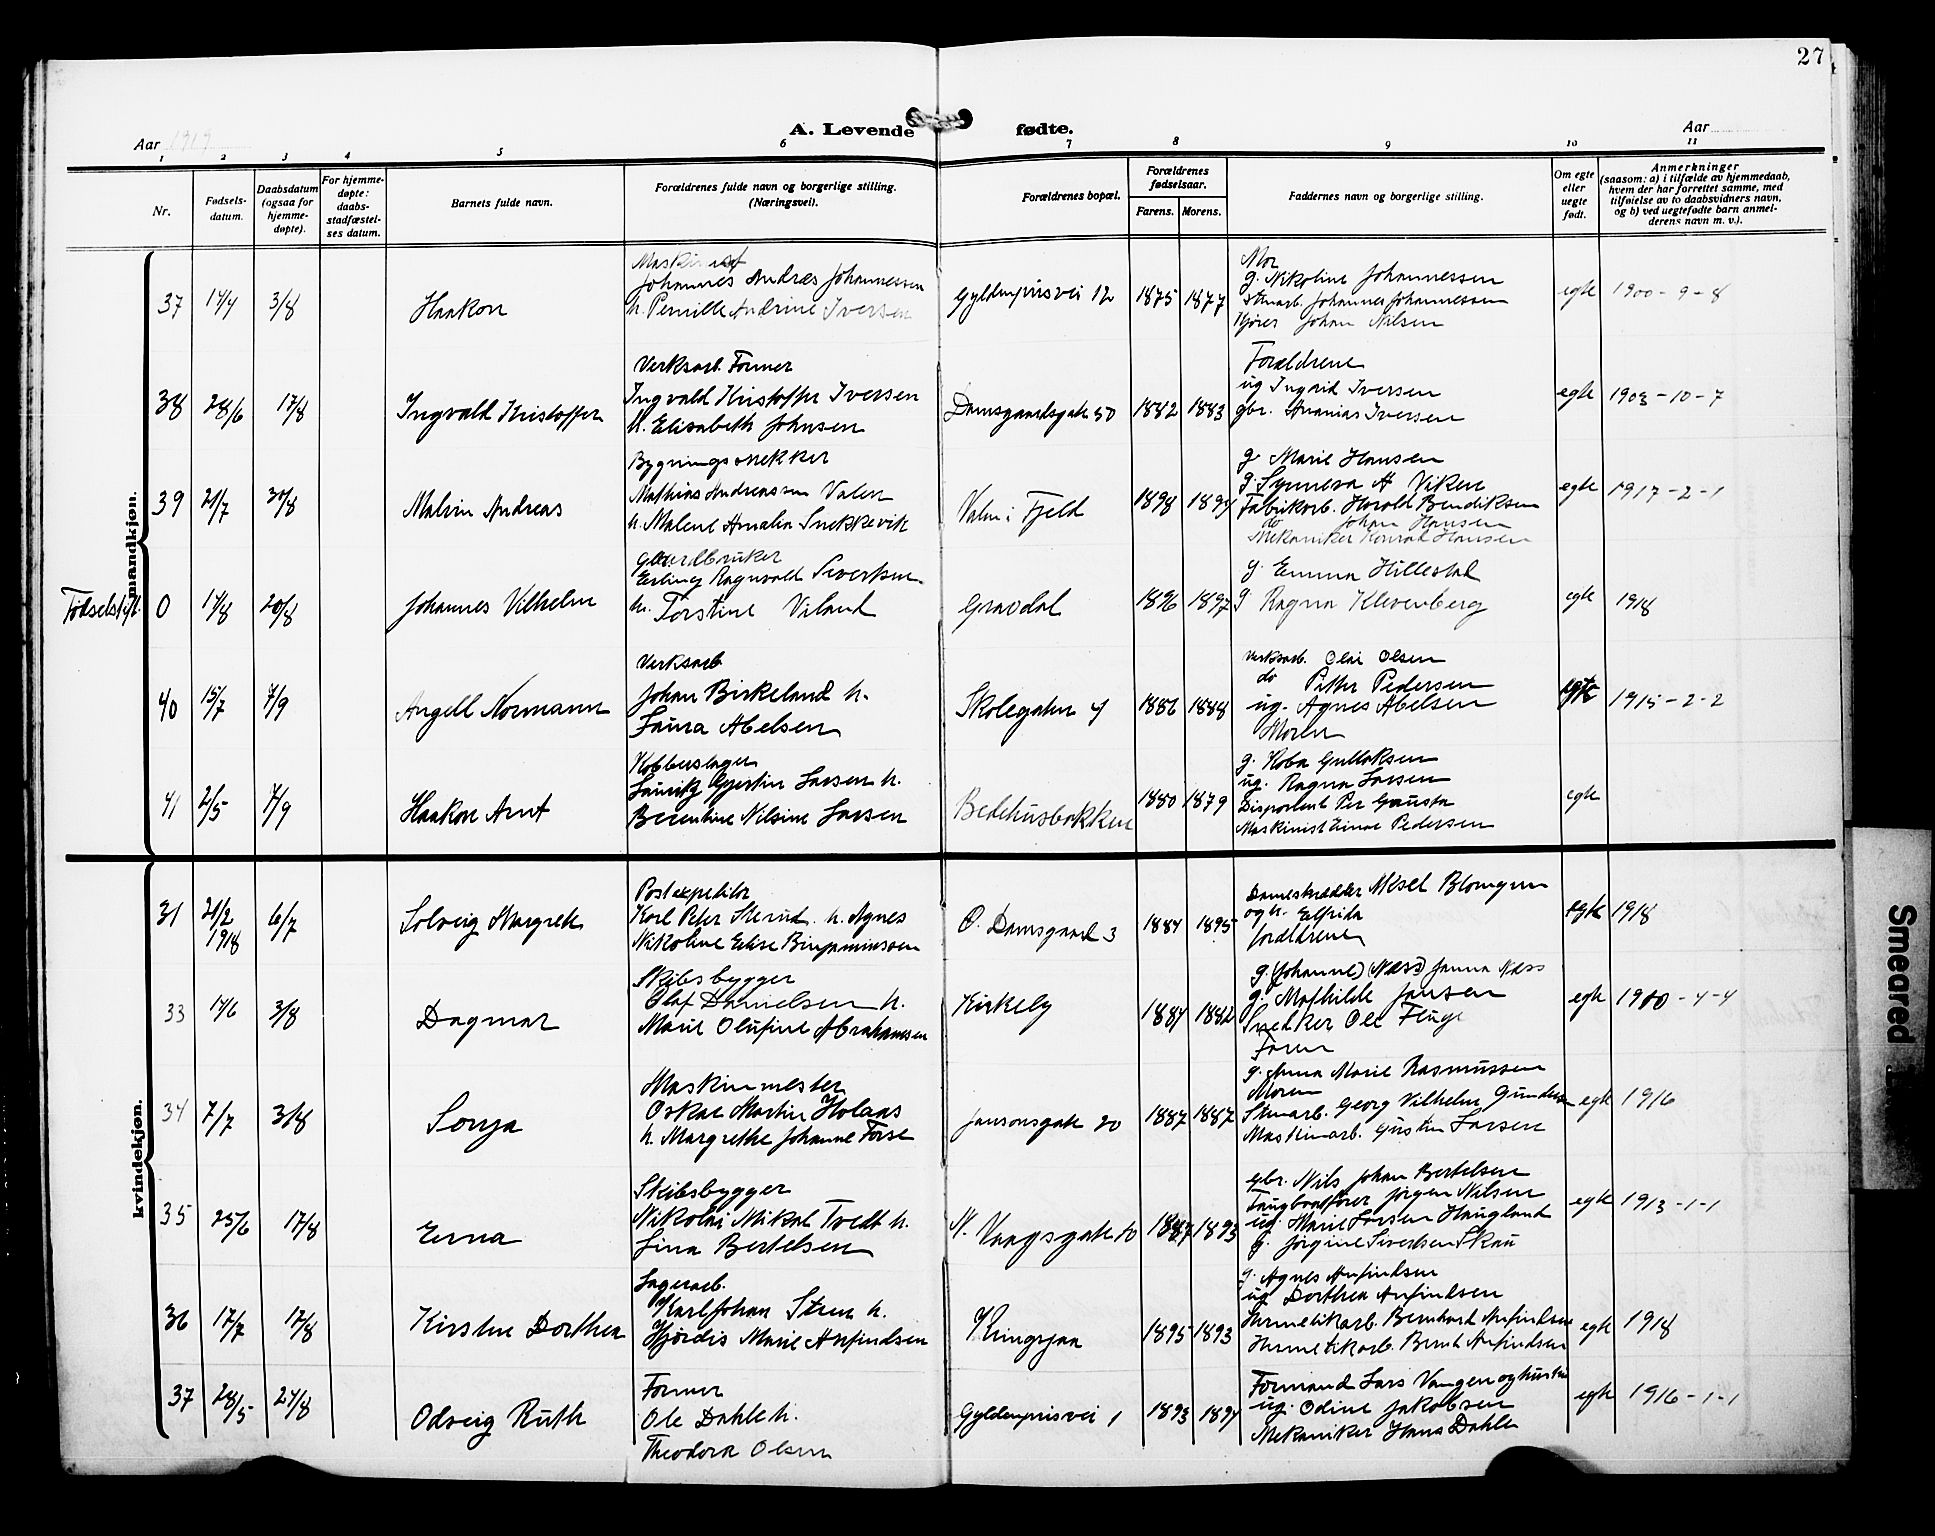 27
A. Levende fødte.
Aar 1919
Aar
1 2 3 4 5 6 7 8 9 10 11
Nr.
Fødsels-
datum.
Daabsdatum
(ogsaa for
hjemme-
døpte).
For hjemme-
døpte:
daabs-
stadfæstel-
ses datum.
Barnets fulde navn.
Forældrenes fulde navn og borgerlige stilling.
(Næringsvei).
Forældrenes bopæl.
Forældrenes
fødselsaar.
Farens. Morens.
Faddernes navn og borgerlige stilling.
Om egte
eller
uegte
født.
Anmerkninger
(saasom: a) i tilfælde av hjemmedaab,
hvem der har forrettet samme, med
tilføielse av to daabsvidners navn,
og b) ved uegtefødte barn anmel-
derens navn m. v.).
mandkjøn.
37 3/8 Haakon
Johannes Andreas Johannessen
h. Pernille Andrine Iversen
Gyldenprisvei 12 1875 1877
Mor
g. Nikoline Johannessen
Johannes Johannessen
Johan Nilsen
egte 1900-9-8
38 28/6 17/8 Ingvald Kristoffer
Verksarb. Former
Ingvald Kristoffer Iversen
h. Elisabeth Johnsen
Damsgaardsgate 50 1882 1883
Forældrene
ug Ingrid Iversen
gbr. Ananias Iversen
egte 1903-10-7
39 21/7 30/8 Malvin Andreas
Bygningssnekker
Mathias Andreassen Valen
h. Malene Amalia Snekkevik
Valen i Fjeld 1898 1894
g Marie Hansen
g. Synneva A Viken
Fabrikarb. Harald Bendiksen
do Johan Hansen
Mekaniker Konrad Hansen
egte 1917-2-1
0 20/8 Johannes Vilhelm
Gaardbruker
Erling Ragnvald Sivertsen
h. Torstine Viland
Gravdal 1896 1897
g. Emma Hillestad
g Ragna Klevenberg
egte 1918
40 15/7 7/9 Angell Normann
Verksarb
Johan Birkeland h.
Laura Abelsen
Skolegaten 4 1886 1888
Verksarb. Olai Olsen
do Petter Pedersen
ug. Agnes Abelsen
Moren
egte 1915-2-2
41 2/5 7/9 Haakon Arnt
Kobberslager
Lauritz Larsen h.
Berentine Nilsine Larsen
Bedehusbakken 1880 1879
g. Gullaksen
ug. Ragna Larsen
Disponent Per Gausta
Maskinist Einar Pedersen
egte
kvindekjøn.
31 21/2 1918 6/7 Solveig Margrete
Postexpeditør
Karl Peter h. Agnes
Nikoline Elise Binjaminssen
Ø. Damsgaard 3 1884 1895
Dameskrædder Aksel Blomgren
og h. Elfrida
forældrene
egte 1918
33 3/8 Dagmar
Skibsbygger
Olaf Danielsen h.
Marie Olufine Abrahamsen
Kirkeby 1884 1882
g. (Johanne) (Næss) Janna Næss
g. Mathilde Jansen
Snedker Ole Fluge
Faren
egte 1910-4-4
34 7/7 3/8 Sonja
Maskinmester
Oskar Martin Holaas
h. Margrethe Johanne
Jansonsgate 20 1887 1887
g. Anna Marie Rasmussen
Moren
Georg Vilhelm Gundersen
Maskinarb. Gustav Larsen
egte 1916
35 25/6 17/8 Erna
Skibsbygger
Nikolai Mikal Tvedt h.
Lina Bertelsen
N. Vaagsgate 10 1887 1893
gbr. Nils Johan Bertelsen
Taugbaatfører Jørgen Nilsen
ug. Marie Larsen Haugland
g. Jørgine Sivertsen Skau
egte 1913-1-1
36 17/7 17/8 Kirsten Dorthea
Lagerarb.
Karl Johan Steen h.
Hjørdis Marie Anfindsen
Kringsjaa 1895 1893
g. Agnes Anfindsen
ug. Dorthea Anfindsen
Hermetikarb. Bernhard Anfindsen
Hermetikarb. Bernt Anfindsen
egte 1918
37 28/5 24/8 Odveig Ruth
Former
Ole Dahle h.
Theodora Olsen
Gyldenprisvei 1 1893 1894
Formand Lars Vangen og hustru
ug. Odine Jakobsen
Mekaniker Hans Dahle
egte 1916-1-1
Smeared